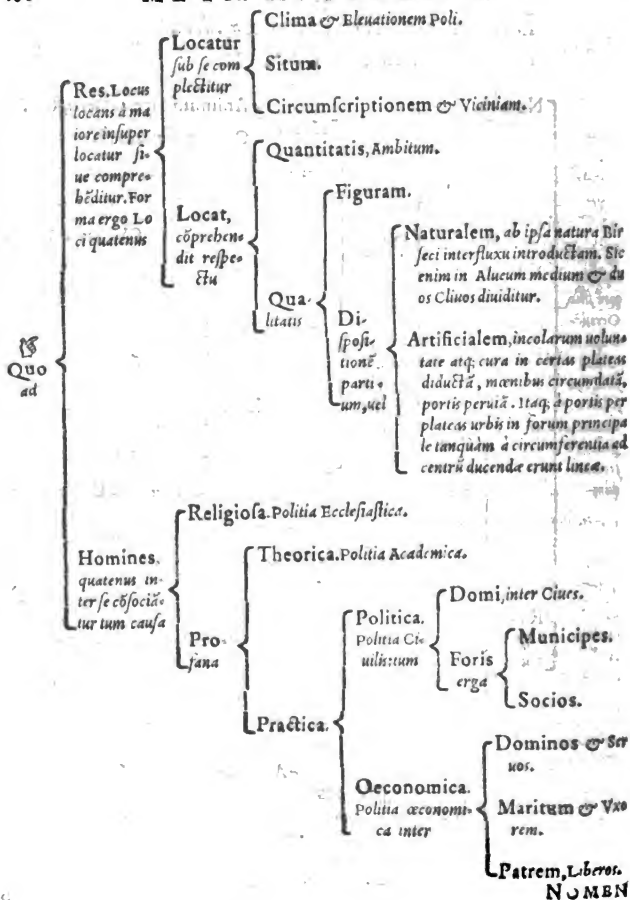 Clima & Eleuationem Poli.
Locatur
ſub ſe com
plectitur
Situm.
Circumſcriptionem & Viciniam.
Res. Locus
locans à ma
iore inſuper
locatur ſi-
ue compre-
hēditur. For
ma ergo Lo
ci quatenus
Quantitatis, Ambitum.
Locat,
cōprehen-
dit reſpe-
ctu
Qua-
litatis
Figuram.
Di-
ſpoſi-
tionē
parti-
um, uel
Naturalem, ab ipſa natura Bir
ſeci interfluxu introductam. Sic
enim in Alueum medium & du
os Cliuos diuiditur.
Artificialem, incolarum uolun-
tate atq; cura in certas plateas
diductā, mœnibus circumdatā,
portis peruiā. Itaq; à portis per
plateas urbis in forum principa
le tanquàm à circumferentia ad
centrū ducendæ erunt lineæ.
☞
Quo
ad
Homines,
quatenus in-
ter ſe cōſociā-
tur tum cauſa
Religioſa. Politia Eccleſiaſtica.
Pro-
fana
Theorica. Politia Academica.
Practica.
Politica.
Politia Ci-
uilis: tum
Domi, inter Ciues.
Foris
erga
Municipes.
Socios.
Oeconomica.
Politia œconomi-
ca inter
Dominos & Ser
uos.
Maritum & Vxo
rem.
Patrem, Liberos.
NOMEN